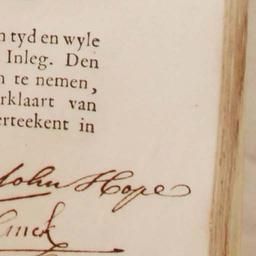 n tyd en wyle
Inleg. Den
n te nemen,
rklaart van
erteekent in
John Hope